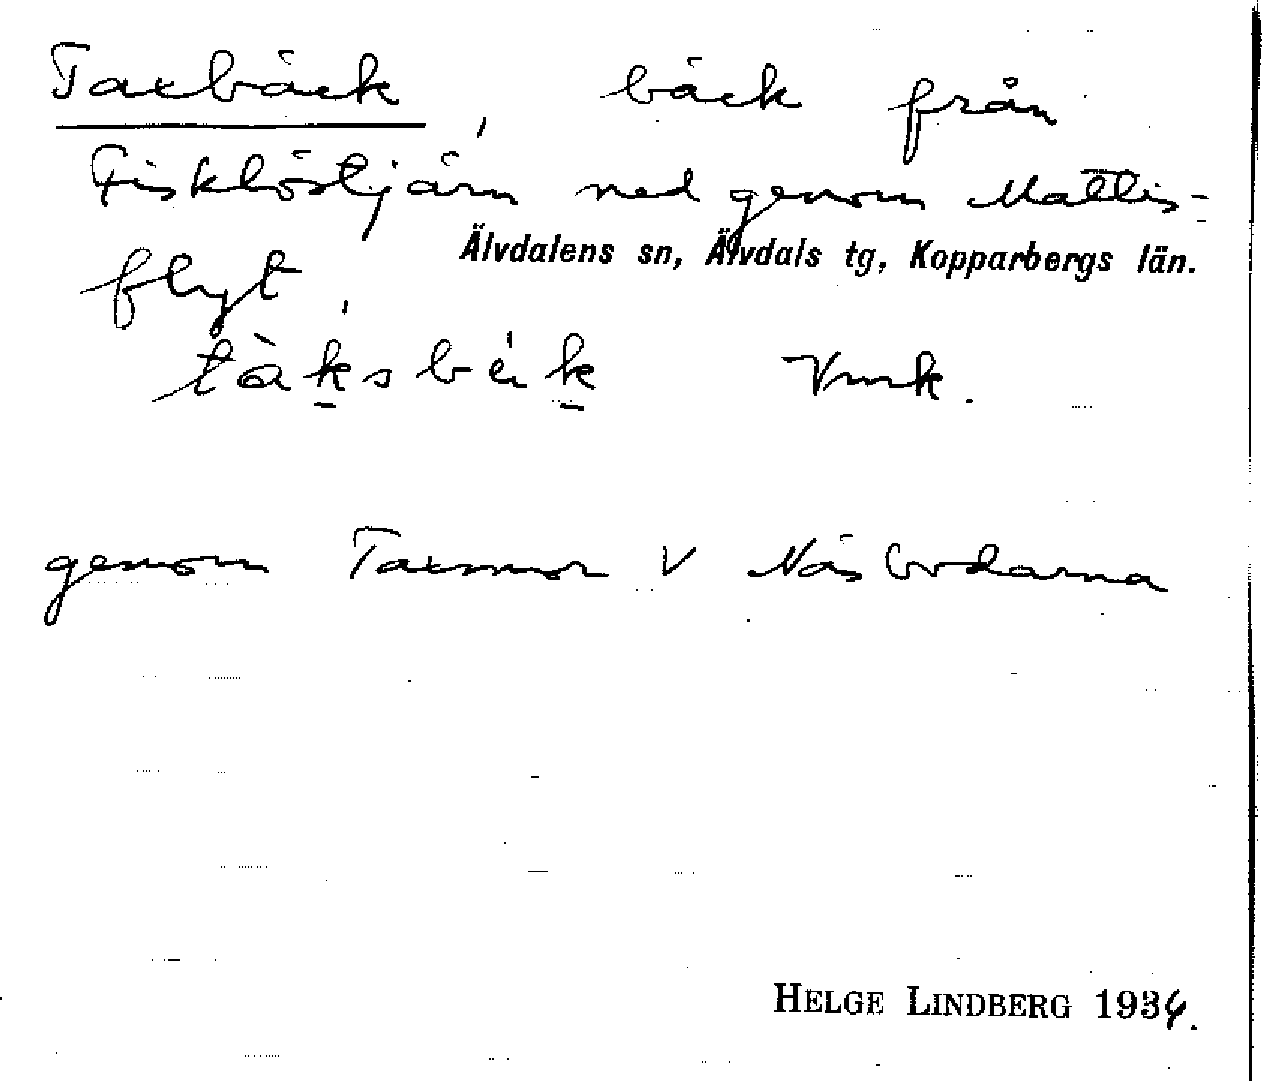 Taxbäck, bäck från
Fisklöstjärn ned genom Mattis-
flyt,
Älvdalens sn, Älvdals tg, Kopparbergs län.
tàksbék Vmk.
genom Taxmor V Näsbodarna
HELGE LINDBERG 1934.